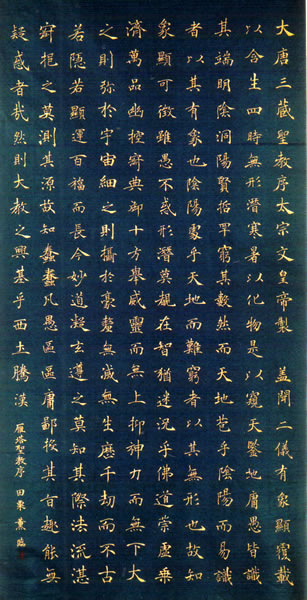 大唐三藏聖教序太宗文皇帝製 蓋聞二儀有象顯覆載
以含生四時無形潛寒暑以化物是以窺天鑒地庸愚皆識
其端明陰洞陽賢哲罕窮其數然而天地苞乎陰陽而易識
者以其有象也陰陽處乎天地而難窮者以其無形也故知
象顯可徵雖愚不惑形潛莫覩在智猶迷況乎佛道崇虛乗
濟萬品幽控寂典御十方舉威靈而無上抑神力而無下大
之則彌於宇宙細之則攝於毫釐無滅無生歷千劫而不古
若隱若顯運百福而長今妙道凝玄遵之莫知其際法流湛
寂挹之莫測其源故知蠢蠢凡愚區區庸鄙投其旨趣能無
疑惑者哉然則大教之興基乎西土騰漢
雁塔聖教序 田東 臨